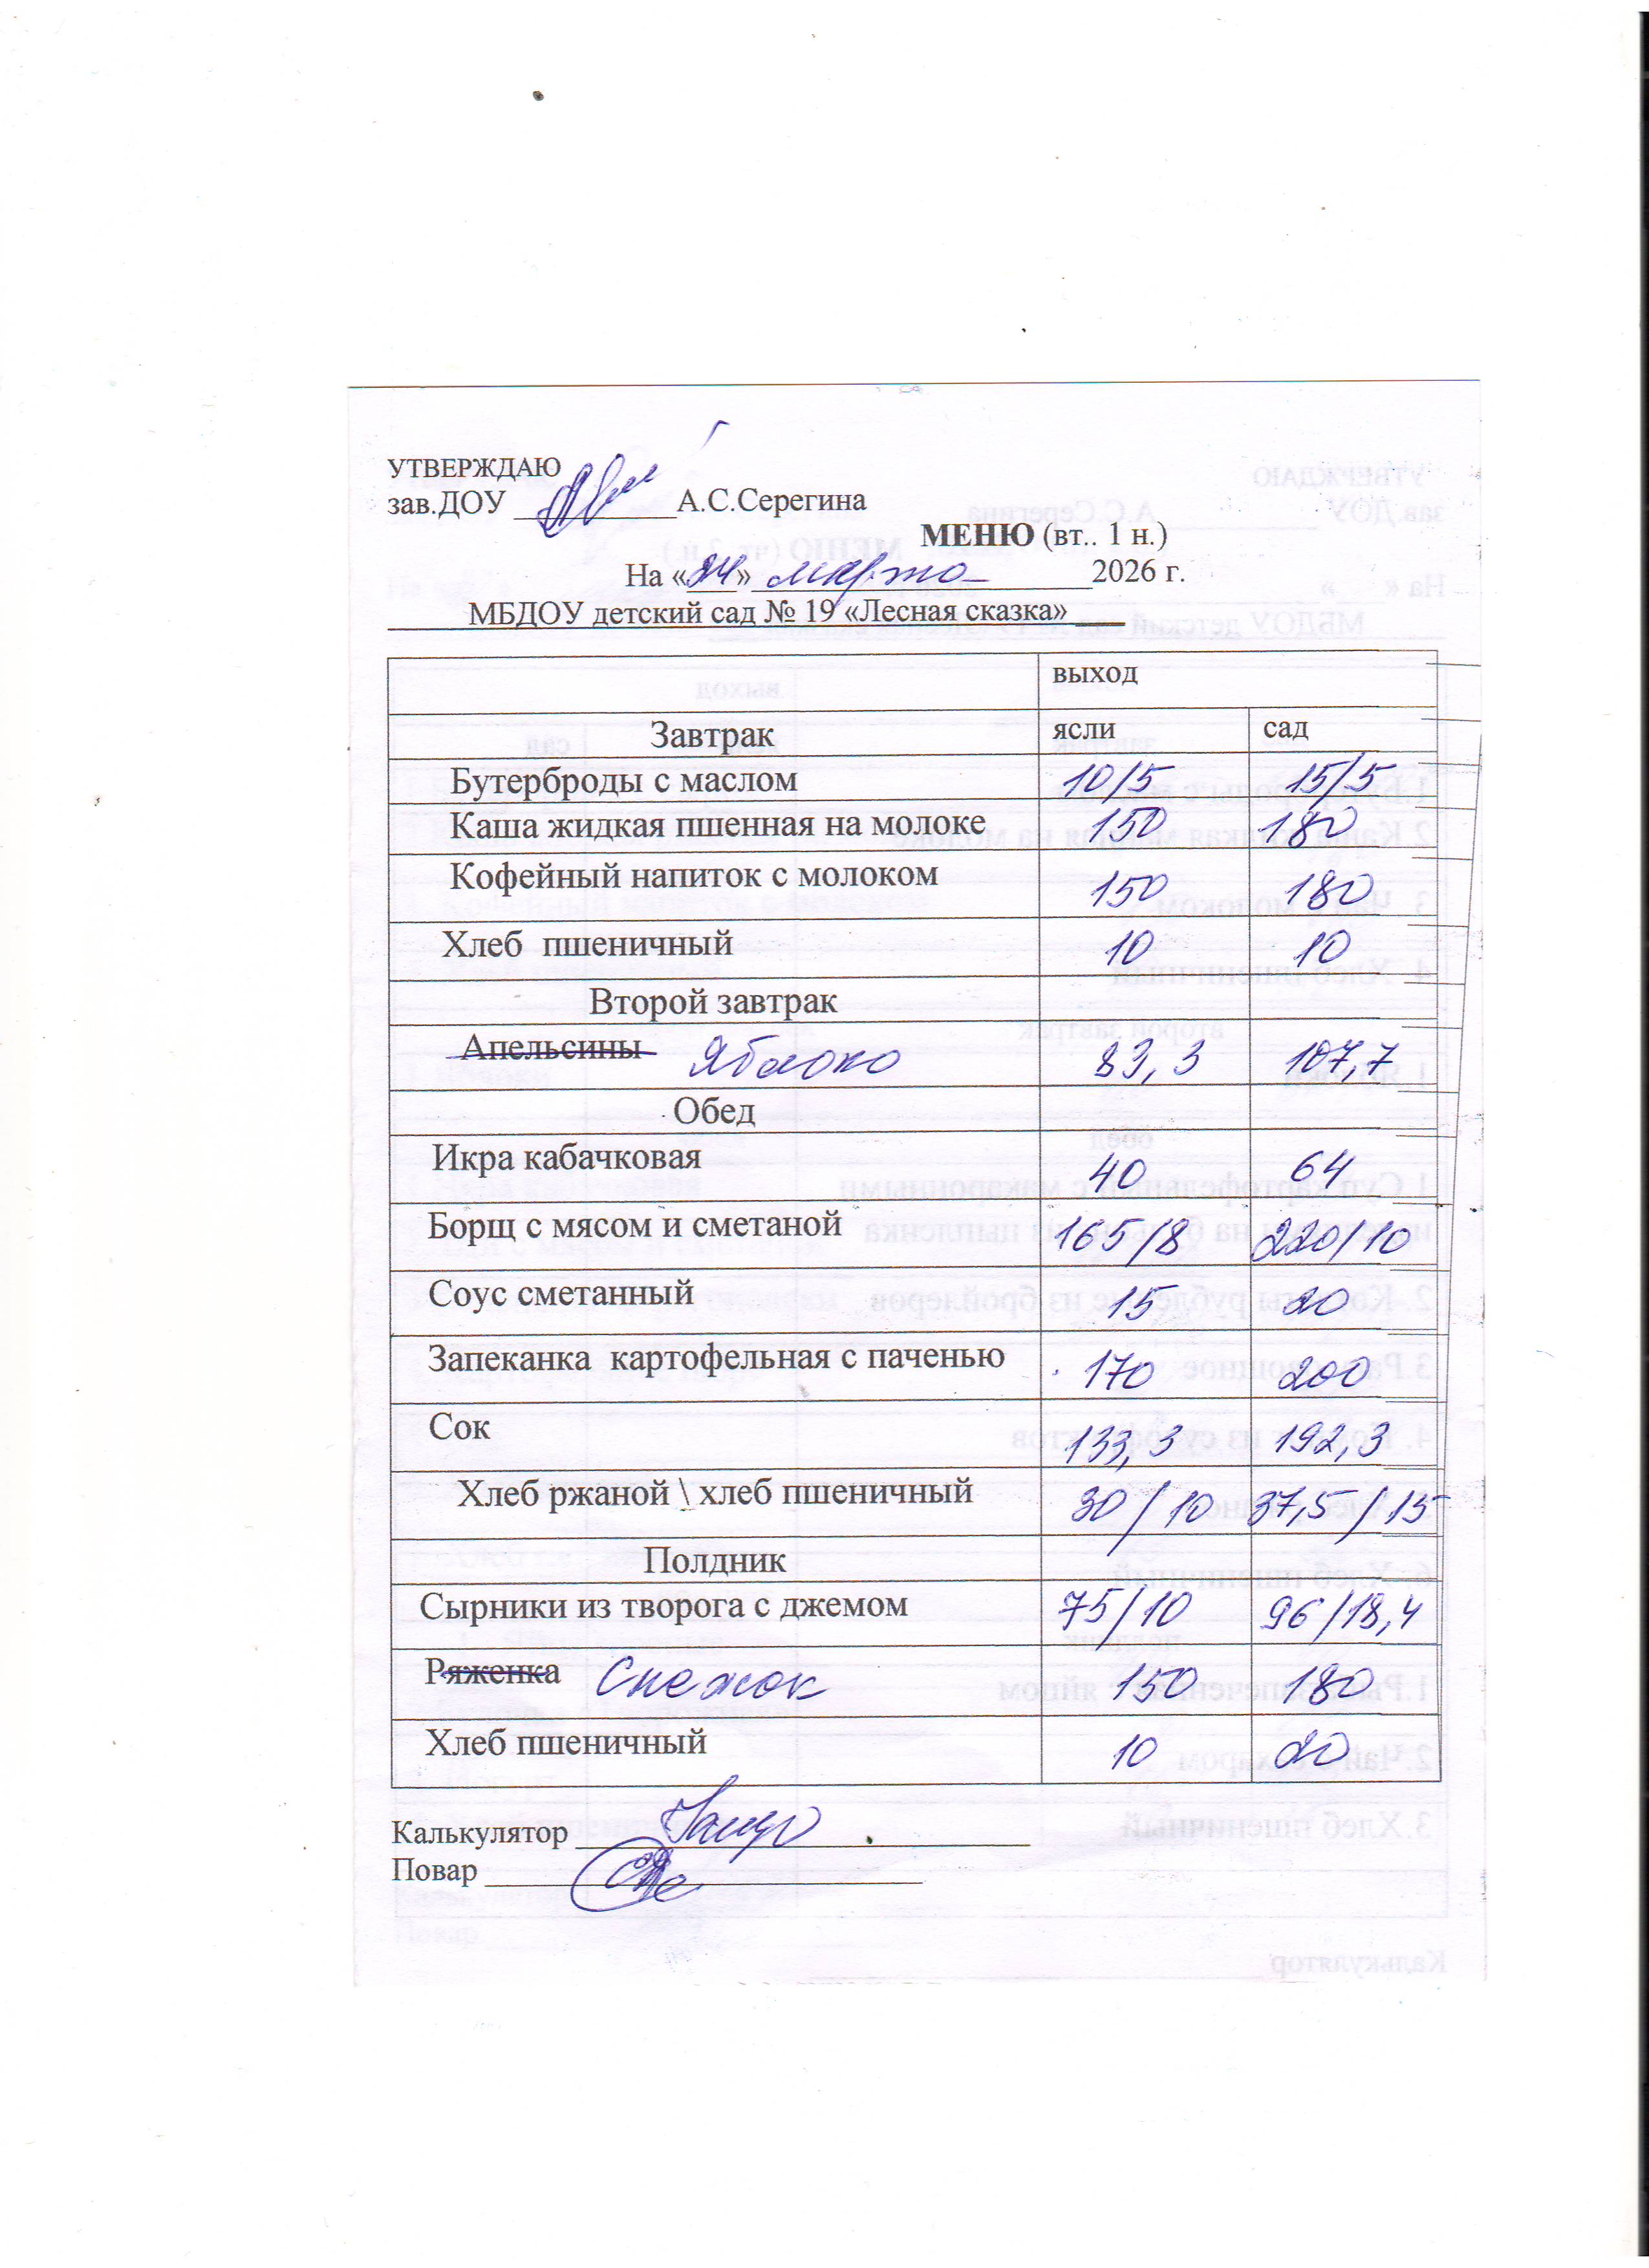 УТВЕРЖДАЮ
зав.ДОУ ____________А.С.Серегина
МЕНЮ (вт.. 1 н.)
На «24» марта 2026 г.
МБДОУ детский сад № 19 «Лесная сказка»
выход
Завтрак ясли сад
Бутерброды с маслом 10/5 15/5
Каша жидкая пшенная на молоке 150 180
Кофейный напиток с молоком 150 180
Хлеб пшеничный 10 10
Второй завтрак
Апельсины Яблоко 83,3 107,7
Обед
Икра кабачковая 40 64
Борщ с мясом и сметаной 165/8 220/10
Соус сметанный 15 20
Запеканка картофельная с паченью 170 200
Сок 133,3 192,3
Хлеб ржаной \ хлеб пшеничный 30/10 37,5/15
Полдник
Сырники из творога с джемом 75/10 96/18,4
Ряженка Снежок 150 180
Хлеб пшеничный 10 20
Калькулятор
Повар